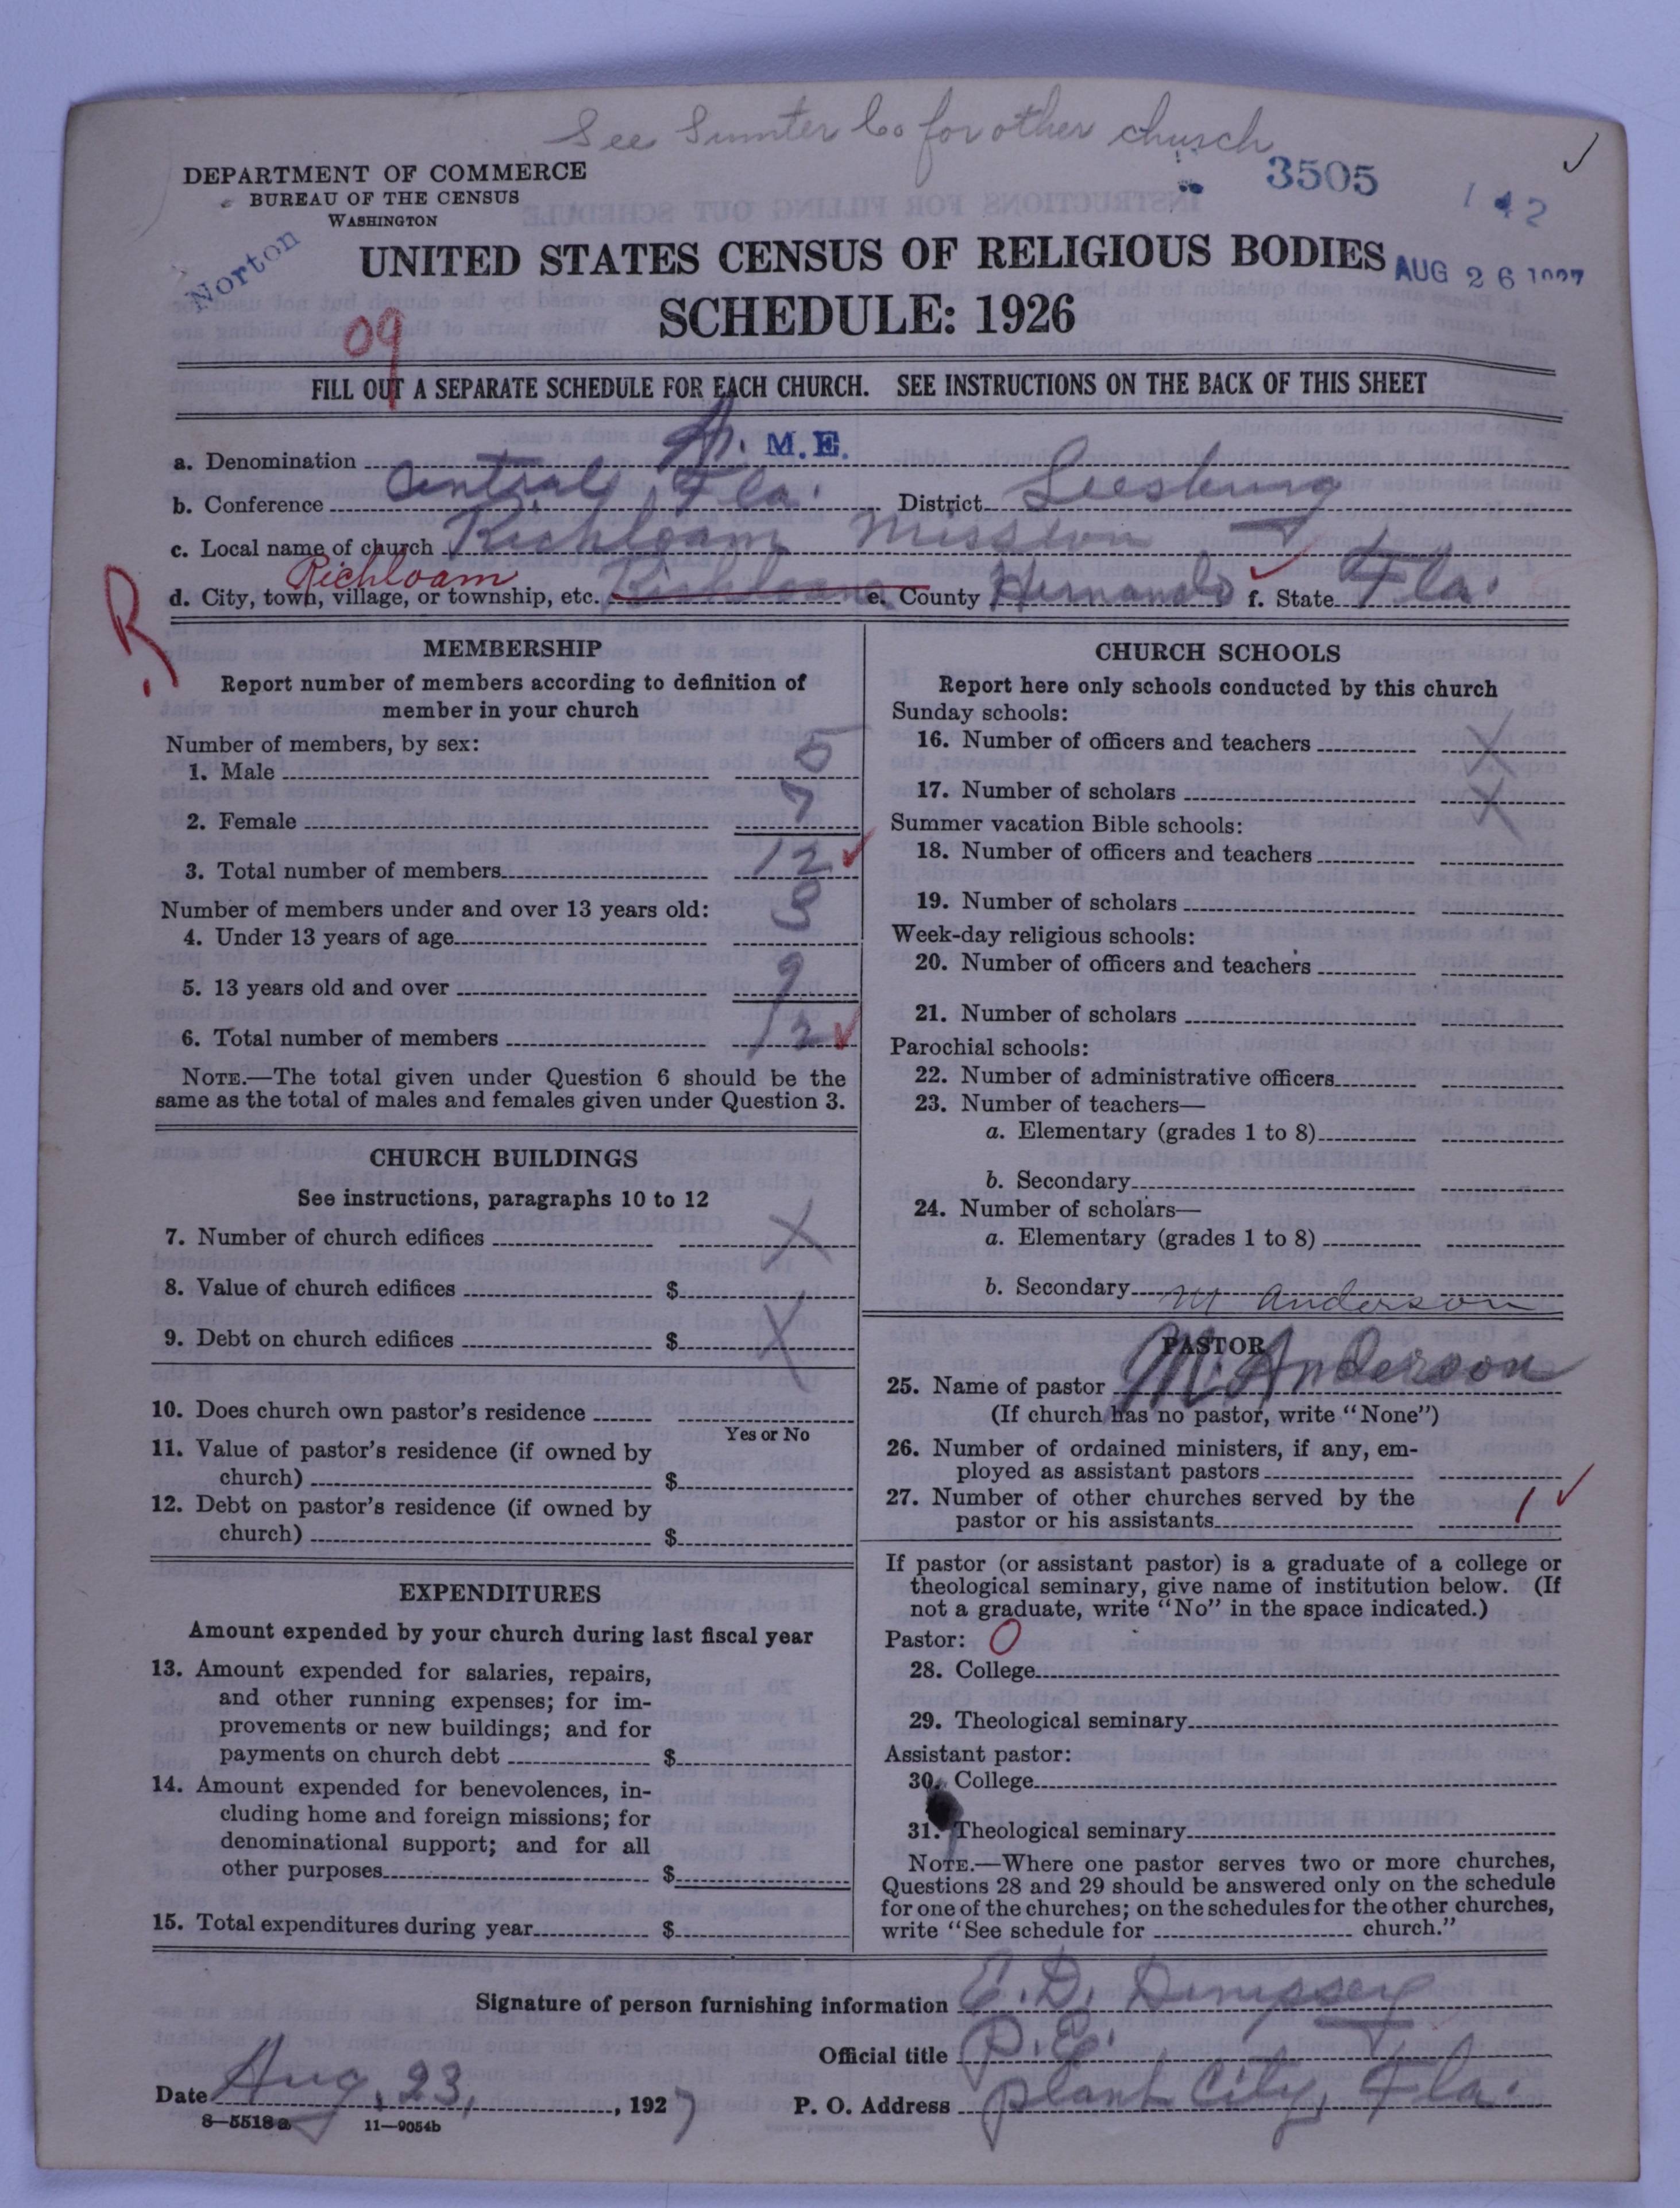 See Sumter Co for other church
DEPARTMENT OF COMMERCE
BUREAU OF THE CENSUS
WASHINGTON
3505
142
Norton
UNITED STATES CENSUS OF RELIGIOUS BODIES
AUG 26 1927
SCHEDULE: 1926
09
FILL OUT A SEPARATE SCHEDULE FOR EACH CHURCH. SEE INSTRUCTIONS ON THE BACK OF THIS SHEET
a. Denomination A. M. E.
b. Conference Central Fla. District Leesburg
c. Local name of church Richloam Mission
Richloam
d. City, town, village, or township, etc. Richloam e. County Hernando f. State Fla.
R
MEMBERSHIP
Report number of members according to definition of
member in your church
Number of members, by sex:
1. Male 5
2. Female 7
3. Total number of members 12
Number of members under and over 13 years old:
4. Under 13 years of age 3
5. 13 years old and over 9
6. Total number of members 12
NOTE.—The total given under Question 6 should be the
same as the total of males and females given under Question 3.
CHURCH BUILDINGS
See instructions, paragraphs 10 to 12
7. Number of church edifices X
8. Value of church edifices $
9. Debt on church edifices $ X
10. Does church own pastor's residence
Yes or No
11. Value of pastor's residence (if owned by
church) $
12. Debt on pastor's residence (if owned by
church) $
EXPENDITURES
Amount expended by your church during last fiscal year
13. Amount expended for salaries, repairs,
and other running expenses; for im-
provements or new buildings; and for
payments on church debt $
14. Amount expended for benevolences, in-
cluding home and foreign missions; for
denominational support; and for all
other purposes $
15. Total expenditures during year $
CHURCH SCHOOLS
Report here only schools conducted by this church
Sunday schools:
16. Number of officers and teachers X
17. Number of scholars X
Summer vacation Bible schools:
18. Number of officers and teachers
19. Number of scholars
Week-day religious schools:
20. Number of officers and teachers
21. Number of scholars
Parochial schools:
22. Number of administrative officers
23. Number of teachers—
a. Elementary (grades 1 to 8)
b. Secondary
24. Number of scholars—
a. Elementary (grades 1 to 8)
b. Secondary
M Anderson
PASTOR
25. Name of pastor M. Anderson
(If church has no pastor, write "None")
26. Number of ordained ministers, if any, em-
ployed as assistant pastors
27. Number of other churches served by the
pastor or his assistants 1
If pastor (or assistant pastor) is a graduate of a college or
theological seminary, give name of institution below. (If
not a graduate, write "No" in the space indicated.)
Pastor: 0
28. College
29. Theological seminary
Assistant pastor:
30. College
31. Theological seminary
NOTE.—Where one pastor serves two or more churches,
Questions 28 and 29 should be answered only on the schedule
for one of the churches; on the schedules for the other churches,
write "See schedule for church."
Signature of person furnishing information E. D. Dempsey
Official title P. E.
Date Aug. 23, 1927 P. O. Address Plant City, Fla.
8—5518a 11—9054b